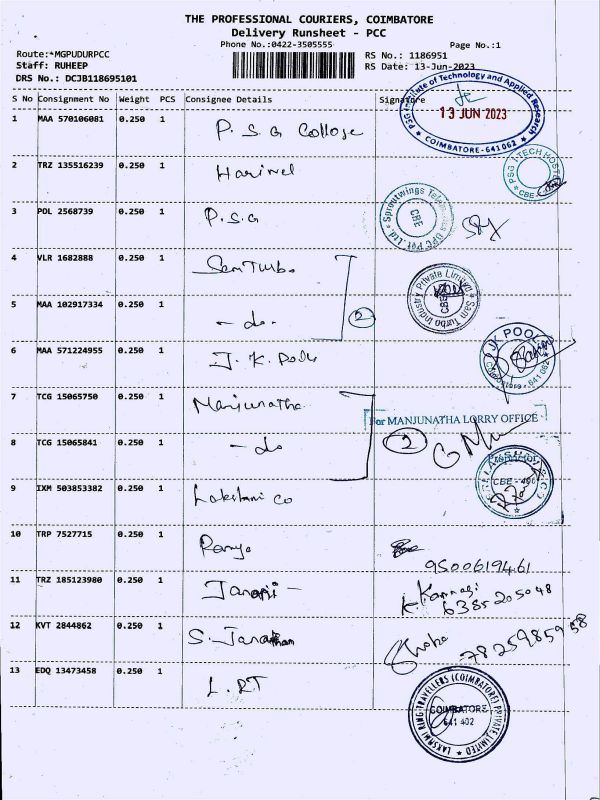 THE PROFESSIONAL COURIERS, COIMBATORE
Delivery Runsheet - PCC
Phone No.:0422-3505555
Page No.:1
Route:*MGPUDURPCC
RS No.: 1186951
Staff: RUHEEP
RS Date: 13-Jun-2023
DRS No.: DCJB118695101
S No Consignment No Weight PCS Consignee Details Signature
PSG Institute of Technology and Applied Research
13 JUN 2023
COIMBATORE-641062
1 MAA 570106081 0.250 1 P.S.G College
2 TRZ 135516239 0.250 1
PSG I-TECH HOSTE
CBE
3 POL 2568739 0.250 1 P.S.G
Sproutwings OPC Pvt. Ltd.
CBE
4 VLR 1682888 0.250 1 Sam Turbo
Sam Turbo Industry Private Limited
CBE
5 MAA 102917334 0.250 1 - do - 2
6 MAA 571224955 0.250 1 J.K.
JK POOL
7 TCG 15065750 0.250 1 Manjunatha
For MANJUNATHA LORRY OFFICE
8 TCG 15065841 0.250 1 - do 2
CBE
9 IXM 503853382 0.250 1 Lakshmi Co
10 TRP 7527715 0.250 1 Ramya
9500619461
11 TRZ 185123980 0.250 1
K. Kannagi
6385205048
12 KVT 2844862 0.250 1 S.
7825985958
13 EDQ 13473458 0.250 1 L.RT
LAKSHMI RING TRAVELLERS (COIMBATORE) PRIVATE LIMITED
COIMBATORE
641 402